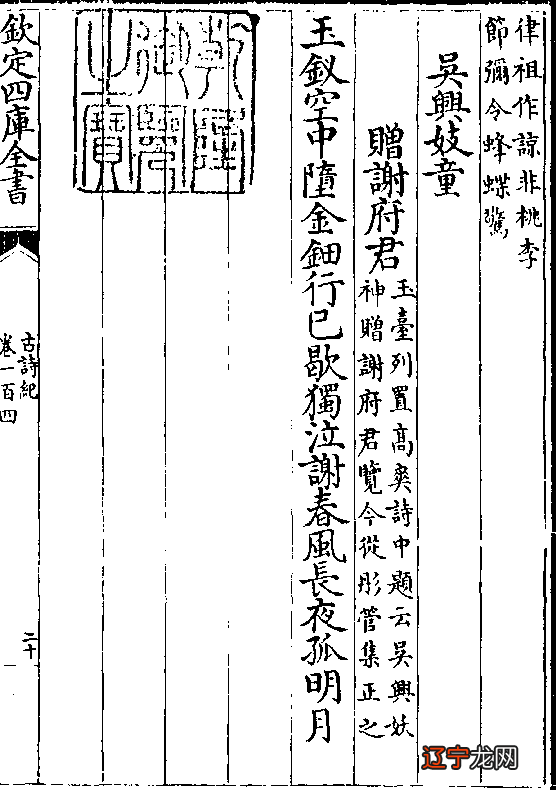 律祖作諒非桃李
節彌令蜂蝶驚
吳興妓童
贈謝府君
玉臺列置高爽詩中題云吳興妖
神贈謝府君覽今從彤管集正之
玉釵空中墮金鈿行已歇獨泣謝春風長夜孤明月
乾隆御覽之寶
欽定四庫全書
古詩紀
卷一百四
二十
辽宁龙网